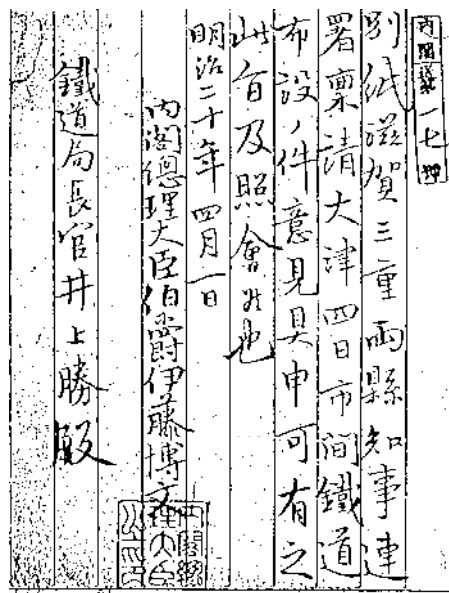 内閣送第一七號
別紙滋賀三重両縣知事連
署稟請大津四日市間鐵道
布設ノ件意見具申可有之
此旨及照會候也
明治二十年四月一日
内閣總理大臣伯爵伊藤博文
鐵道局長官井上勝殿